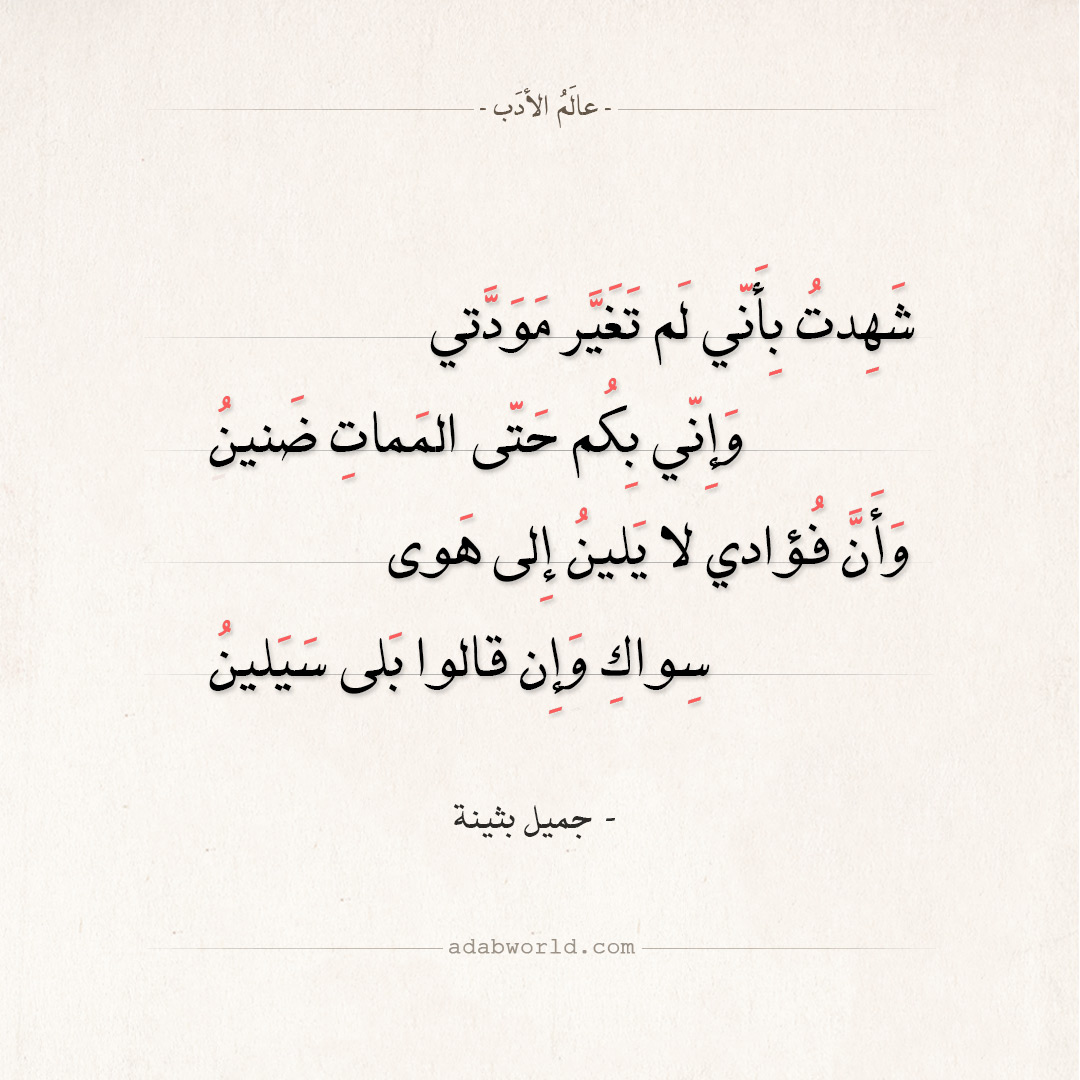 - عالَمُ الأدَب -
شَهِدتُ بِأَنّي لَم تَغَيَّر مَوَدَّتي
وَإِنّي بِكُم حَتّى المَماتِ ضَنينُ
وَأَنَّ فُؤادي لا يَلينُ إِلى هَوى
سِواكِ وَإِن قالوا بَلى سَيَلينُ
- جميل بثينة
adabworld.com